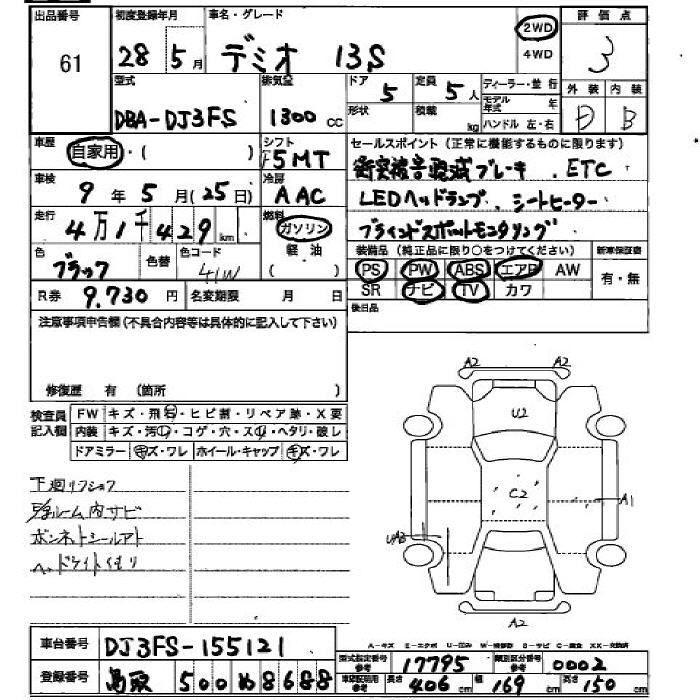 出品番号 61
初度登録年月 28 5月
車名・グレード デミオ 13S
2WD
4WD
評価点 3
外装 内装
D B
型式 DBA-DJ3FS
排気量 1300 cc
ドア 5
形状
定員 5人
積載 kg
ディーラー・並行
モデル年式 年
ハンドル 左・右
車歴 自家用・( )
シフト F5MT
セールスポイント(正常に機能するものに限ります)
衝突被害軽減ブレーキ . ETC
LEDヘッドランプ、シートヒーター
ブラインドスポットモニタリング
車検 9年5月(25日)
冷房 AAC
走行 4万1千429km
燃料 ガソリン
軽油
( )
色 ブラック
色替
色コード 41W
装備品(純正品に限り○をつけてください)
PS PW ABS エアB AW
SR ナビ TV カワ
新車保証書
有・無
R券 9.730円
名変期限 月 日
後日品
注意事項申告欄(不具合内容等は具体的に記入して下さい)
修復歴 有 (箇所 )
検査員記入欄
FW キズ・飛石・ヒビ割・リペア跡・X要
内装 キズ・汚レ・コゲ・穴・スレ・ヘタリ・破レ
ドアミラー キズ・ワレ ホイール・キャップ キズ・ワレ
下廻リフショク
ルーム内サビ
ボンネットシールアト
ヘッドライトくもり
A2 A2
U2
C2
A1
UA3
A2
A-キズ E-エクボ U-凹み W-補修跡 S-サビ C-腐食 XX-交換済
車台番号 DJ3FS-155121
登録番号 鳥取 500 め 8688
型式指定番号 参考 17795
類別区分番号 参考 0002
車検証記載用 参考 長さ 406 cm 幅 169 cm 高さ 150 cm